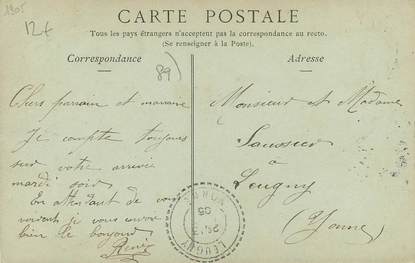 1905
12+
CARTE POSTALE
Tous les pays étrangers n'acceptent pas la correspondance au recto.
(Se renseigner à la Poste).
Correspondance
Adresse
89)
Chers parrain et marraine
Je compte toujours
sur votre arrivée
mardi soir
En attendant de vous
je vous envoie
bien le bonjour
René
Monsieur et Madame
Saussier
à
Leugny
(Yonne)
LEUGNY
05
YONNE